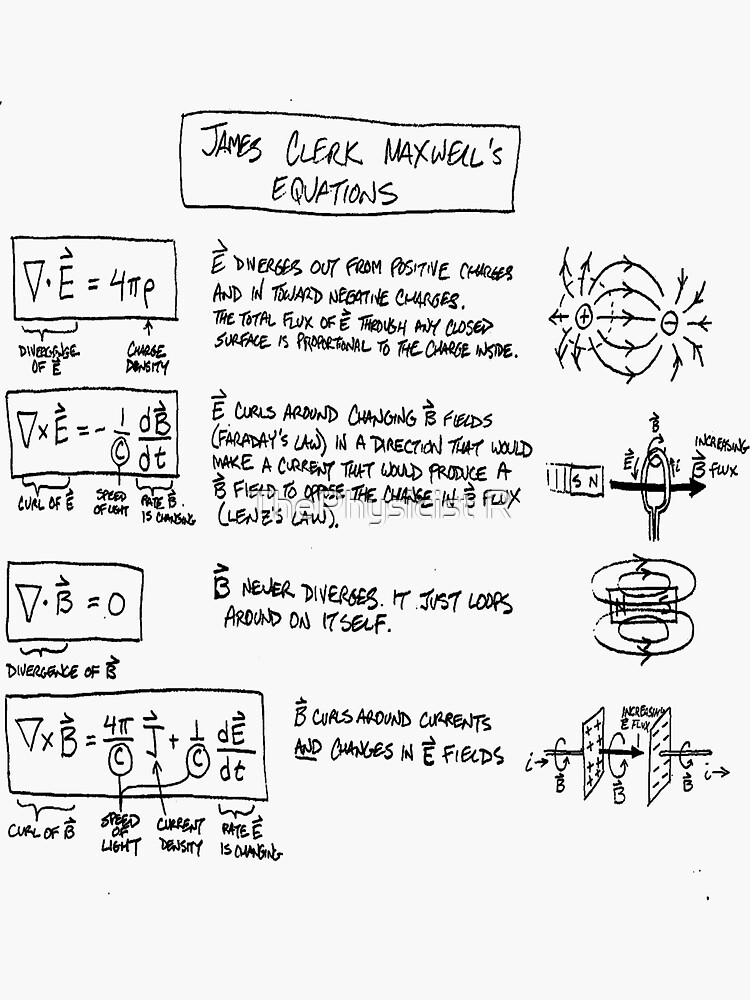 JAMES CLERK MAXWELL'S
EQUATIONS
∇·E⃗ = 4πρ
DIVERGENCE
OF E⃗
CHARGE
DENSITY
E⃗ DIVERGES OUT FROM POSITIVE CHARGES
AND IN TOWARD NEGATIVE CHARGES.
THE TOTAL FLUX OF E⃗ THROUGH ANY CLOSED
SURFACE IS PROPORTIONAL TO THE CHARGE INSIDE.
+
−
∇×E⃗ = − 1/C dB⃗/dt
CURL OF E⃗
SPEED
OF LIGHT
RATE B⃗
IS CHANGING
E⃗ CURLS AROUND CHANGING B⃗ FIELDS
(FARADAY'S LAW) IN A DIRECTION THAT WOULD
MAKE A CURRENT THAT WOULD PRODUCE A
B⃗ FIELD TO OPPOSE THE CHANGE IN B⃗ FLUX
(LENZ'S LAW).
ThePhysicist R
S N
B⃗
E⃗
i
INCREASING
B⃗ FLUX
∇·B⃗ = 0
DIVERGENCE OF B⃗
B⃗ NEVER DIVERGES. IT JUST LOOPS
AROUND ON ITSELF.
N
∇×B⃗ = 4π/C J⃗ + 1/C dE⃗/dt
CURL OF B⃗
SPEED
OF
LIGHT
CURRENT
DENSITY
RATE E⃗
IS CHANGING
B⃗ CURLS AROUND CURRENTS
AND CHANGES IN E⃗ FIELDS
INCREASING
E⃗ FLUX
i→
B⃗
B⃗
B⃗
i→